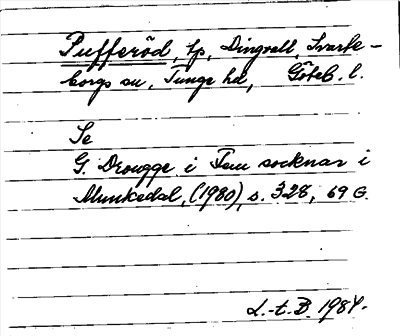 Pufferöd, tp, Dingvall, Svarte-
borgs sn, Tunge hd, Göteb. l.
Se
G. Drougge i Fem socknar i
Munkedal, (1980), s. 328, 69 G.
L.-t. B. 1984.